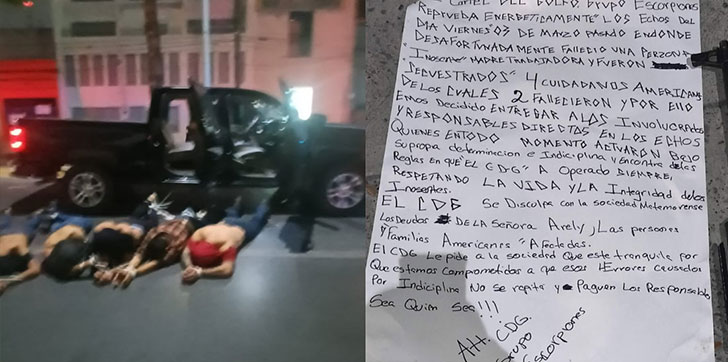 CARTEL DEL GOLFO GRUPO ESCORPIONS
REPRUEBA ENERGETICAMENTE "LOS ECHOS DEL
DIA VIERNES "03 DE MARZO PASADO ENDONDE
DESAFORTUNADAMENTE FALLECIO UNA PERSONA
"INOSENTE" MADRE TRABAJADORA Y FUERON
SECUESTRADOS" 4 CUIDADANOS AMERICANOS
DE LOS CUALES 2 FALLECIERON Y POR ELLO
EMOS DECIDIDO ENTREGAR A LOS INVOLUCRADOS
Y RESPONSABLES DIRECTOS EN LOS ECHOS
QUIENES EN TODO MOMENTO ACTUARON BAJO
SU PROPIA DETERMINACION E INDICIPLINA Y ENCONTRA DE LAS
REGLAS EN QUE "EL CDG" A OPERADO SIEMPRE,
RESPETANDO LA VIDA Y LA INTEGRIDAD DE LOS
INOSENTES.
EL CDG SE DISCULPA CON LA SOCIEDAD MATAMORENSE
LOS DEUDOS DE LA SEÑORA ARELY, LAS PERSONES
Y FAMILIAS AMERICANES "AFECTADAS.
EL CDG LE PIDE A LA SOCIEDAD QUE ESTE TRANQUILA POR
QUE ESTAMOS COMPROMETIDOS A QUE ESOS ERRORES CAUSADOS
POR INDICIPLINA NO SE REPITA Y PAGUAN LOS RESPONSABLES
SEA QUIN SEA!!!
ATT. CDG.
GRUPO
ESCORPIONES